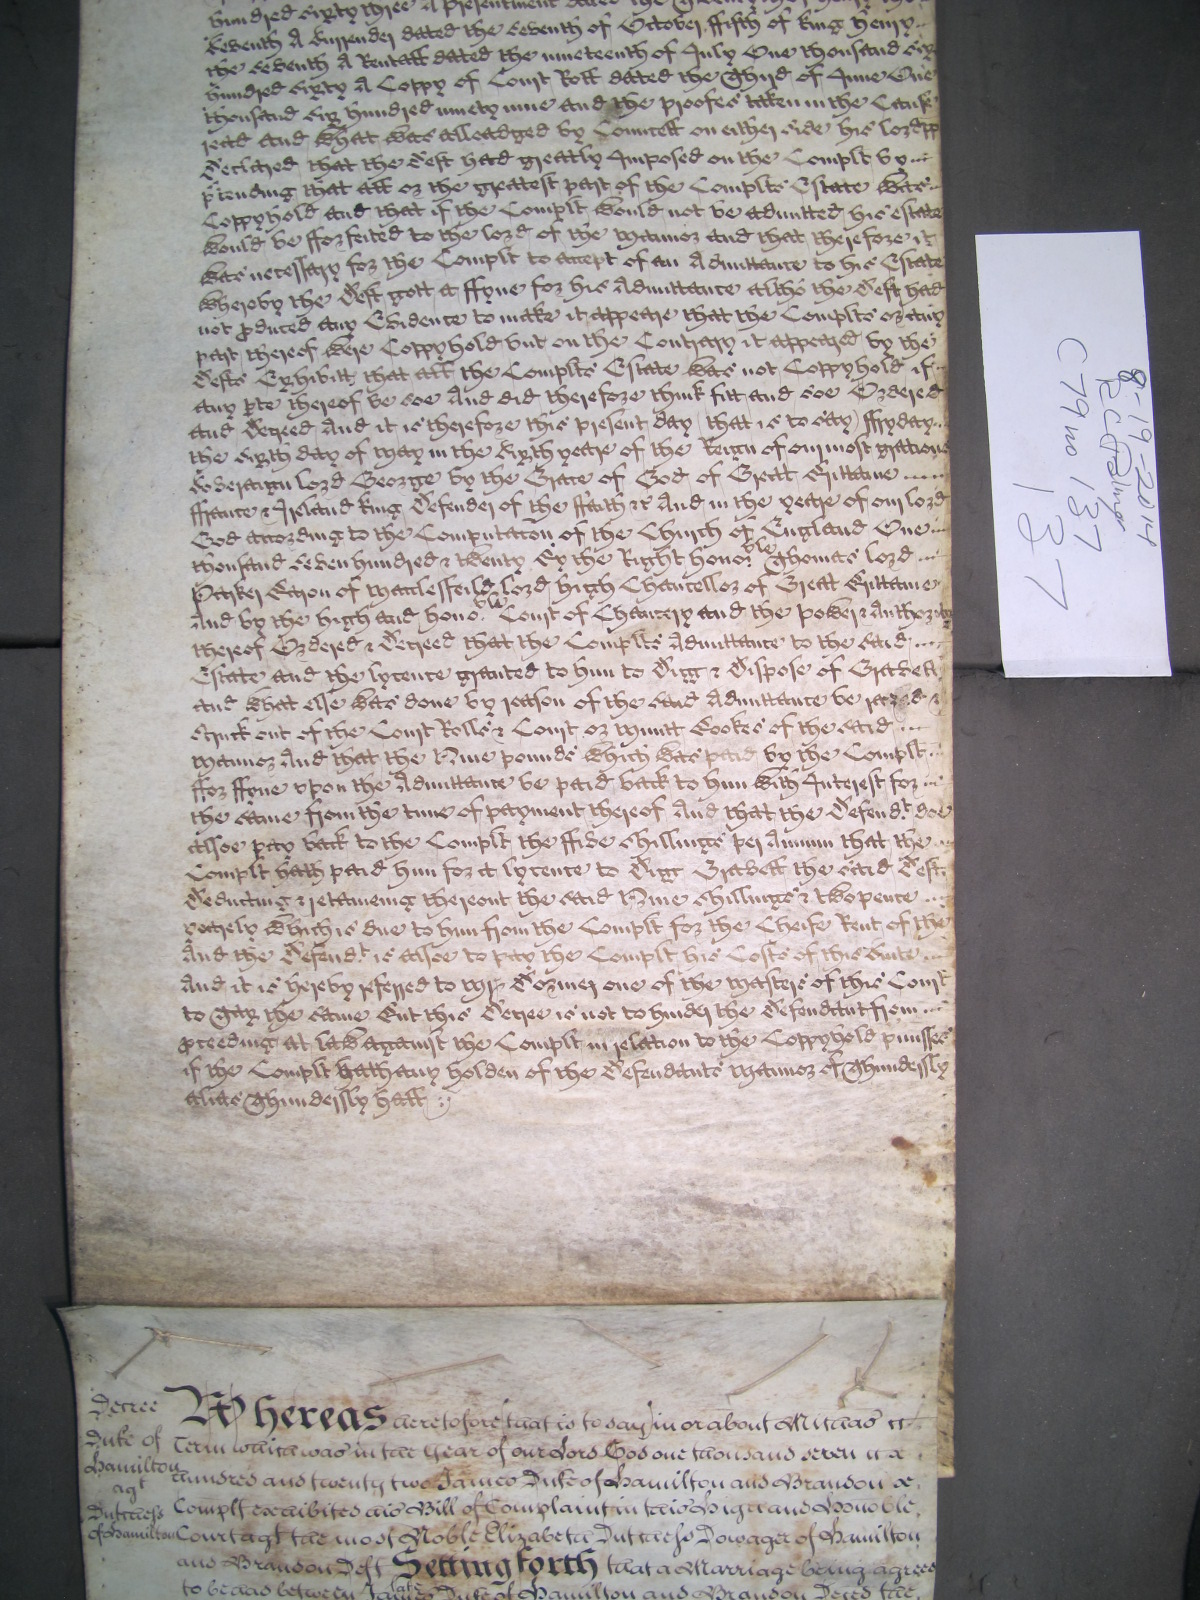 hundred sixty three A presentment dated the
Seventh A Surrender dated the Seventh of October ffifth of King Henry
the Seventh A Rentall dated the nineteenth of July One thousand six
hundred sixty A Coppy of Court Roll dated the Third of June One
thousand six hundred ninety nine and the proofes taken in the Cause
read and what was alleadged by Councell on either side his Lordpp
Declared that the Deft had greatly Imposed on the Complt by
ptending that all or the greatest part of the Complts Estate was
Coppyhold and that if the Complt would not be admitted his estate
would be fforfeited to the lord of the mannor and that therefore it
was necessary for the Complt to accept of an Admittance to his Estate
whereby the Deft gott a ffyne for his Admittance altho the Deft had
not pduced any Evidence to make it appeare that the Complts or any
part thereof were Coppyhold but on the Contrary it appeared by the
Defts Exhibitt that all the Complts Estate was not Coppyhold if
any pte thereof be soe And did therefore think fitt and soe Ordered
and Decreed And it is therefore this present day (that is to say) ffryday
the sixth day of May in the Sixth yeare of the Reign of our most gratious
Soveraign Lord George by the Grace of God of Great Brittaine
ffrance & Ireland King Defender of the ffaith &c And in the yeare of our Lord
God according to the Computation of the Church of England One
thousand seven hundred & twenty By the Right honoble Thomas Lord
Parker Baron of Macclesfeild Lord high Chancellor of Great Brittaine
And by the high and honoble Court of Chancery and the power & Authority
thereof Ordered & Decreed that the Complts Admittance to the said
Estate and the lycence granted to him to Digg & Dispose of Gravell
and what else was done by reason of the said Admittance be razed &
struck out of the Court Rolls & Court or Minutt Bookes of the said
mannor And that the Nine pounds which was paid by the Complt
ffor ffyne upon the Admittance be paid back to him with Interest for
the same from the time of payment thereof And that the Defendt doe
alsoe pay back to the Complt the ffive shillings per Annum that the
Complt hath paid him for a lycence to Digg Gravell the said Deft
Deducting & retaineing thereout the said Nine shillings & twopence
yearely which is due to him from the Complt for the Cheife Rent of the
And the Defendt is alsoe to pay the Complt his Costs of this Suite
And it is hereby referred to Mr Dormer one of the Masters of this Court
to Tax the same But this Decree is not to hinder the Defendant from
pceeding at law against the Complt in relation to the Coppyhold pmisses
if the Complt hath any holden of the Defendants Mannor of Thundersly
alias Thundersly hall
8-19-2014
R C Palmer
C 79 no 137
137
Decree
Duke of
Hamilton
agt
Dutchess
of Hamilton
Whereas heretofore that is to say in or about Michas
Term which was in the Year of our Lord God one thousand seven
hundred and twenty two James Duke of Hamilton and Brandon
Complt exhibited his Bill of Complaint in this High and Honoble
Court agt the most Noble Elizabeth Dutchess Dowager of Hamilton
and Brandon Deft Setting forth that a Marriage being agreed
to be had between James late Duke of Hamilton and Brandon Deced the